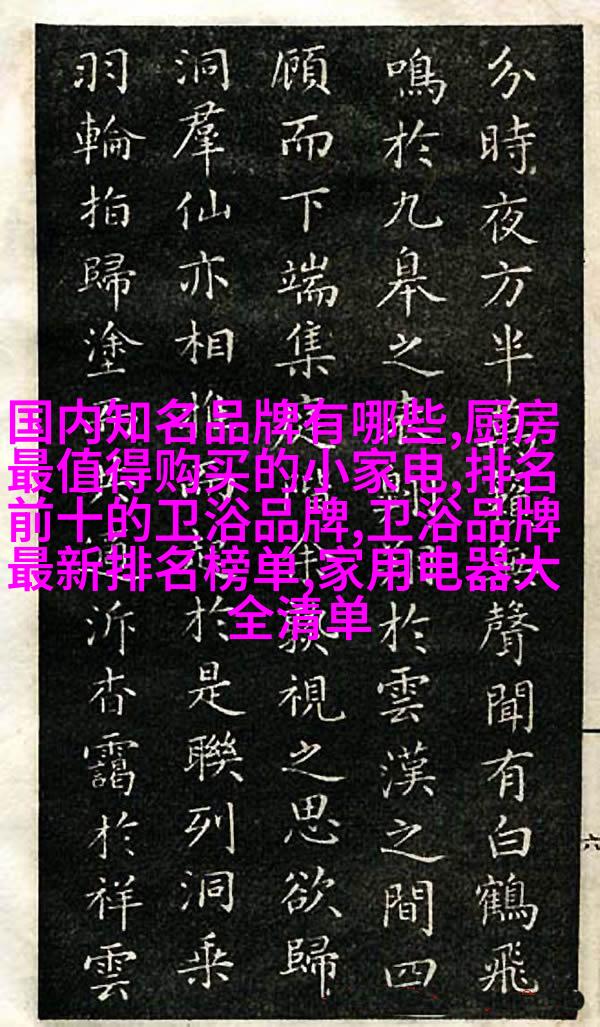 分時夜方半聲聞有白鶴飛
鳴於九皋之於雲漢之間四
顧而下端集視之思欲歸
洞羣仙亦相於是聯列洞乘
羽輪拍歸塗泝杳靄於祥雲
国内知名品牌有哪些,厨房
最值得购买的小家电,排名
前十的卫浴品牌,卫浴品牌
最新排名榜单,家用电器大
全清单
六